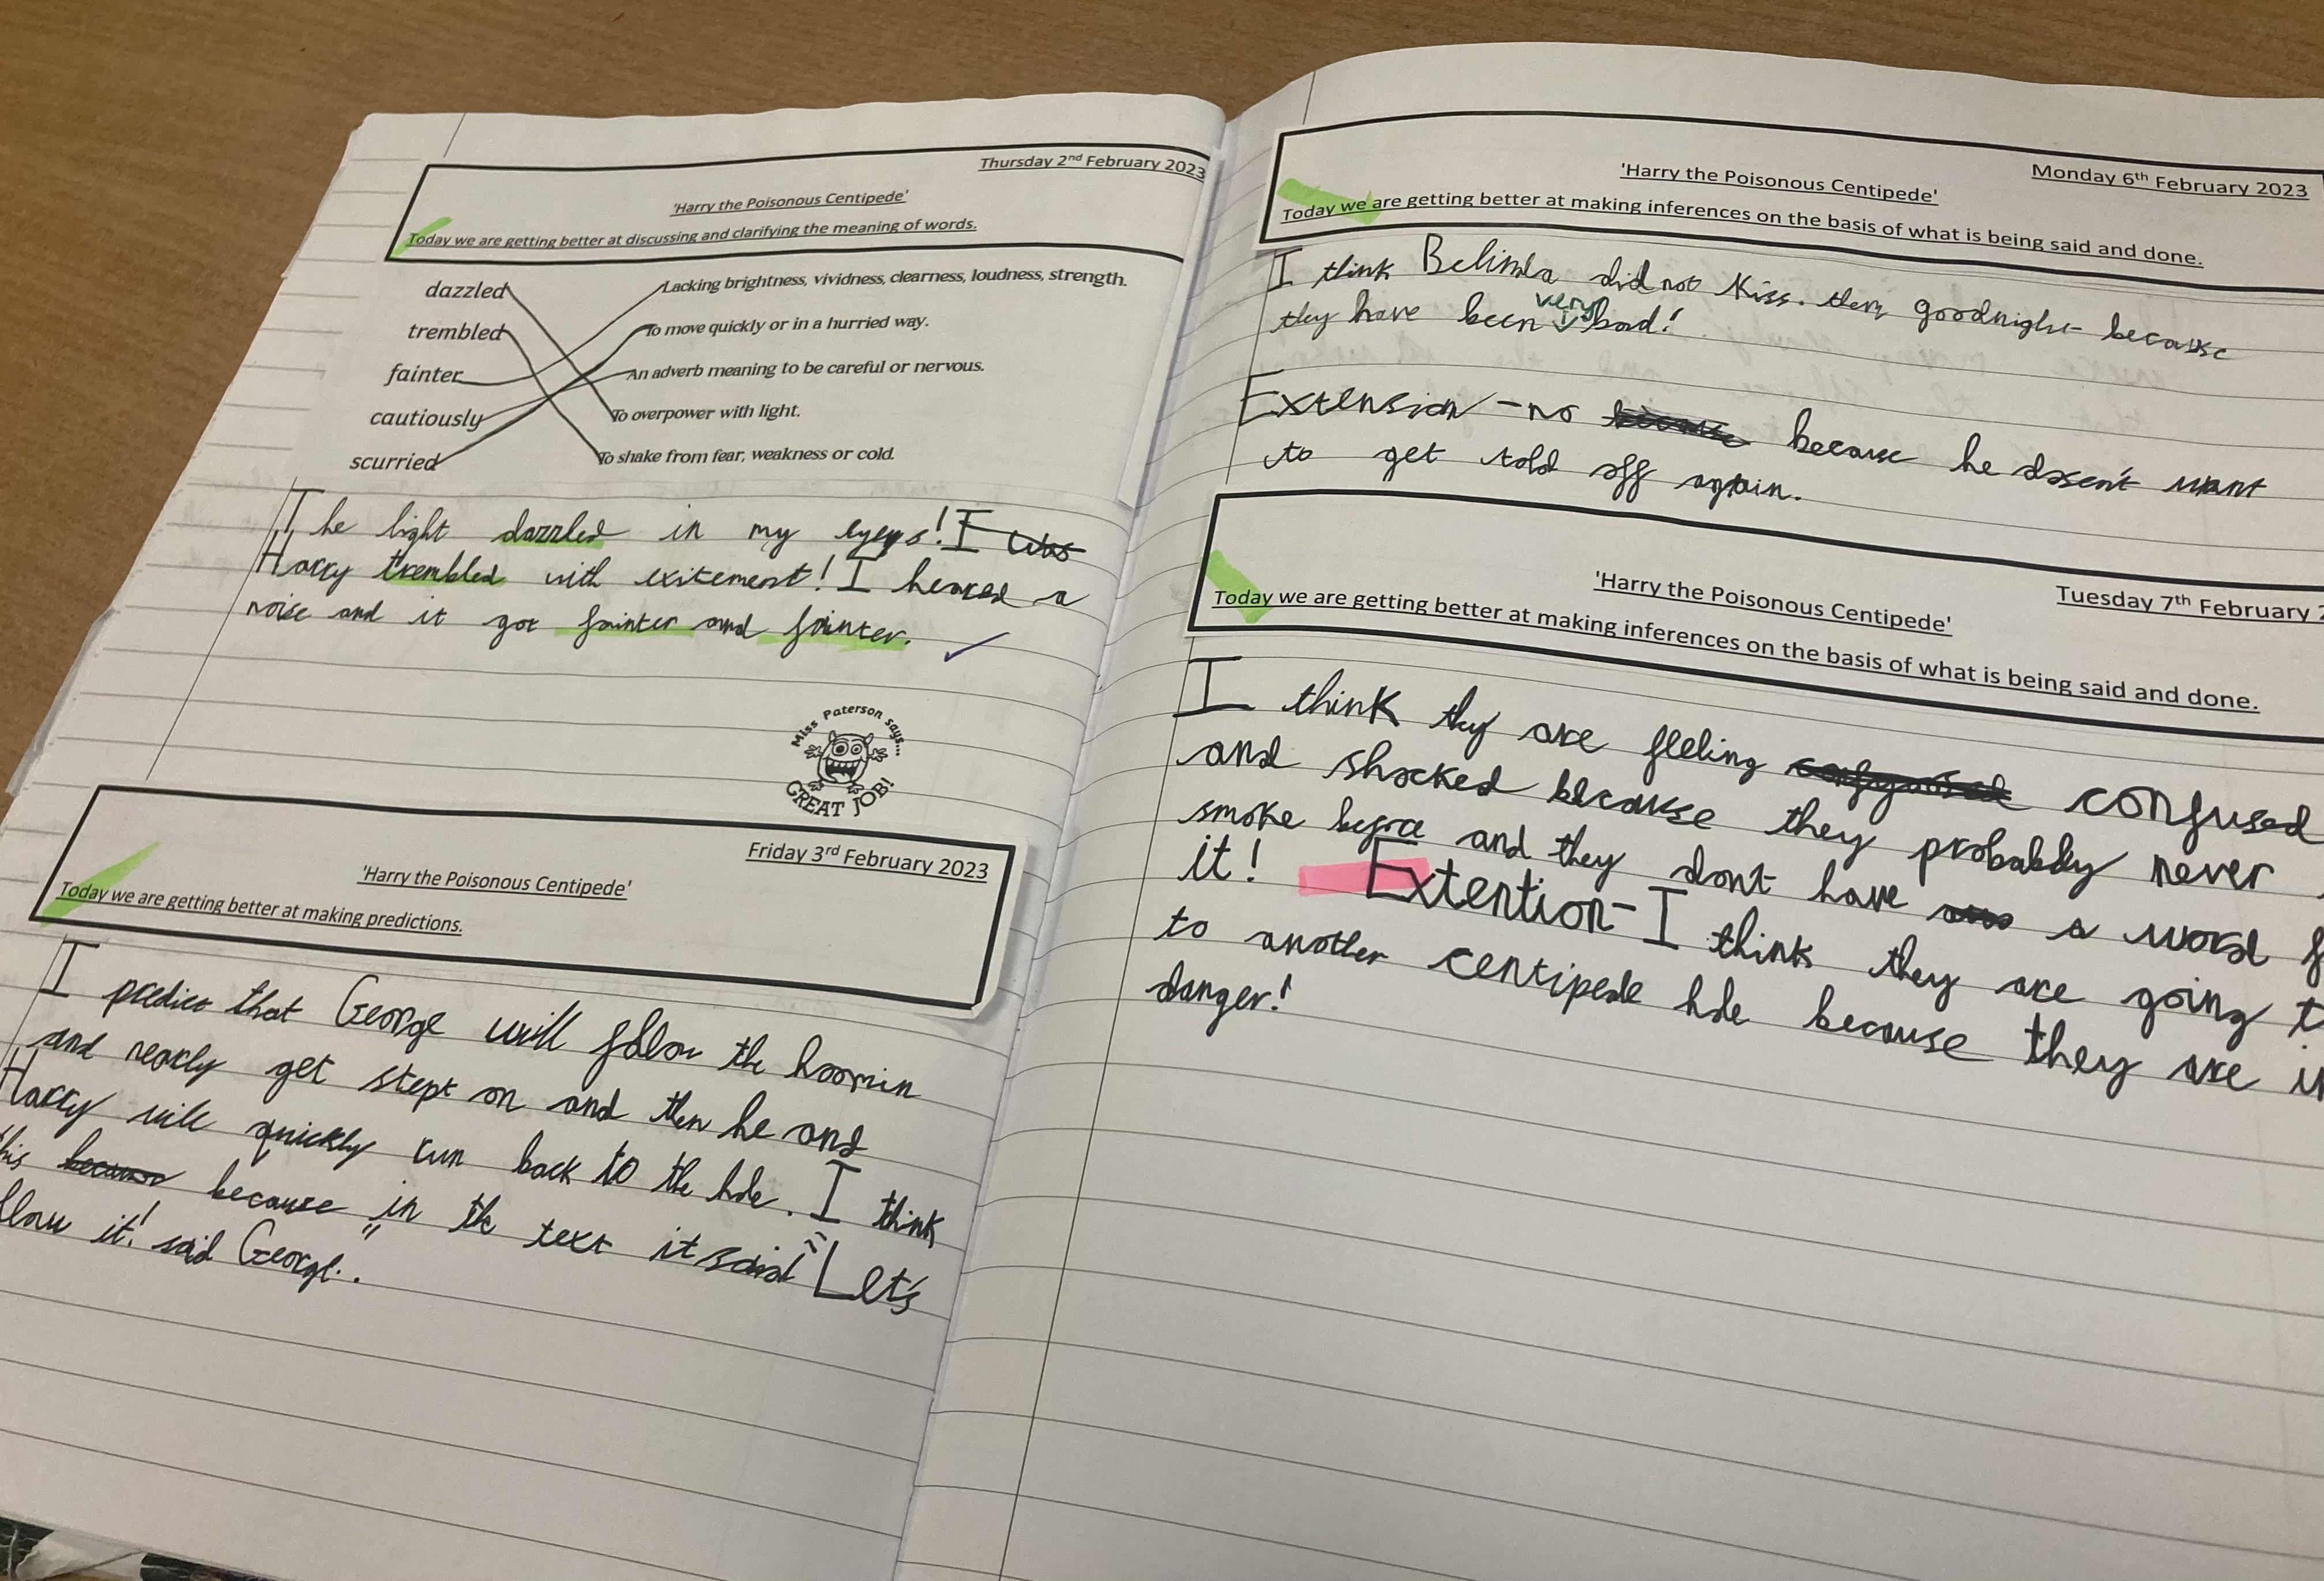 Thursday 2nd February 2023
'Harry the Poisonous Centipede'
Today we are getting better at discussing and clarifying the meaning of words.
dazzled Lacking brightness, vividness, clearness, loudness, strength.
trembled To move quickly or in a hurried way.
fainter An adverb meaning to be careful or nervous.
cautiously To overpower with light.
scurried To shake from fear, weakness or cold.
The light dazzled in my eyes! I was
Harry trembled with exitement! I heared a
noise and it got fainter and fainter.
Miss Paterson says...
GREAT JOB!
Friday 3rd February 2023
'Harry the Poisonous Centipede'
Today we are getting better at making predictions.
I predict that George will follow the hoomin
and nearly get stept on and then he and
Harry will quickly run back to the hole. I think
this because in the text it said "Let's
it!" said George.
Monday 6th February 2023
'Harry the Poisonous Centipede'
Today we are getting better at making inferences on the basis of what is being said and done.
I think Belinda did not Kiss them goodnight because
they have been very bad!
Extension - no because he doesn't want
to get told off again.
Tuesday 7th February
'Harry the Poisonous Centipede'
Today we are getting better at making inferences on the basis of what is being said and done.
I think they are feeling confused
and shocked because they probably never
smoke before and they dont have a word
it! Extention - I think they are going
to another centipede hole because they are
danger!